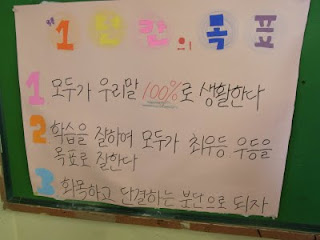 "1 분단의 목표
1 모두가 우리말 100%로 생활한다
2 학습을 잘하여 모두가 최우등 우등을
목표로 잘한다
3 화목하고 단결하는 분단으로 되자